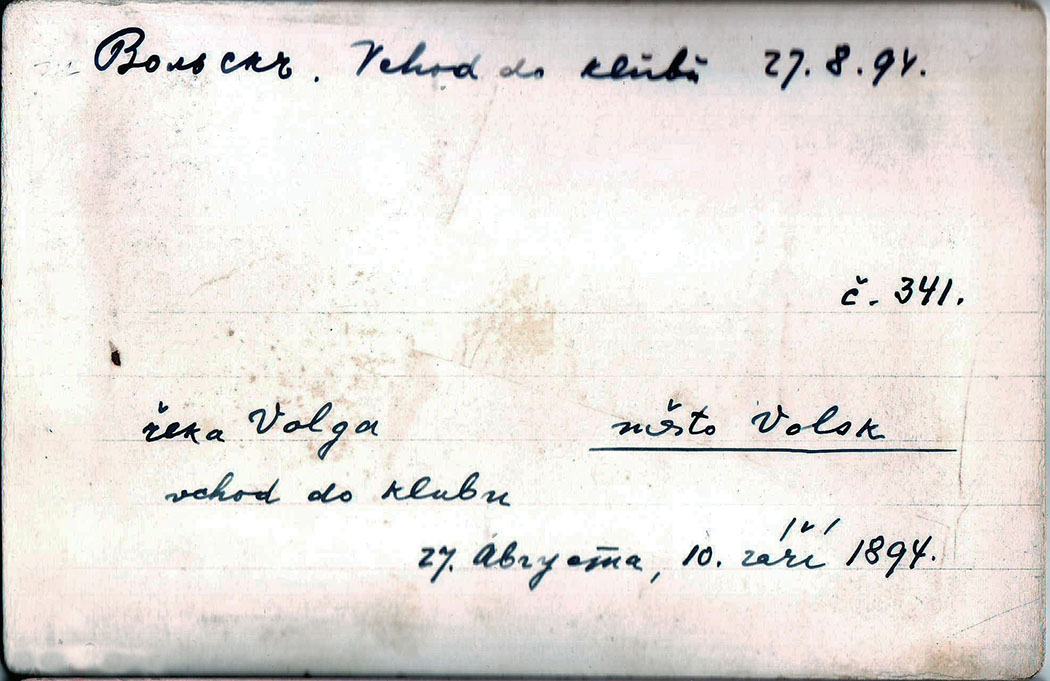 Вольскъ. Vchod do klubu 27.8.94.
č. 341.
řeka Volga město Volsk
vchod do klubu
27. Августа, 10. září 1894.